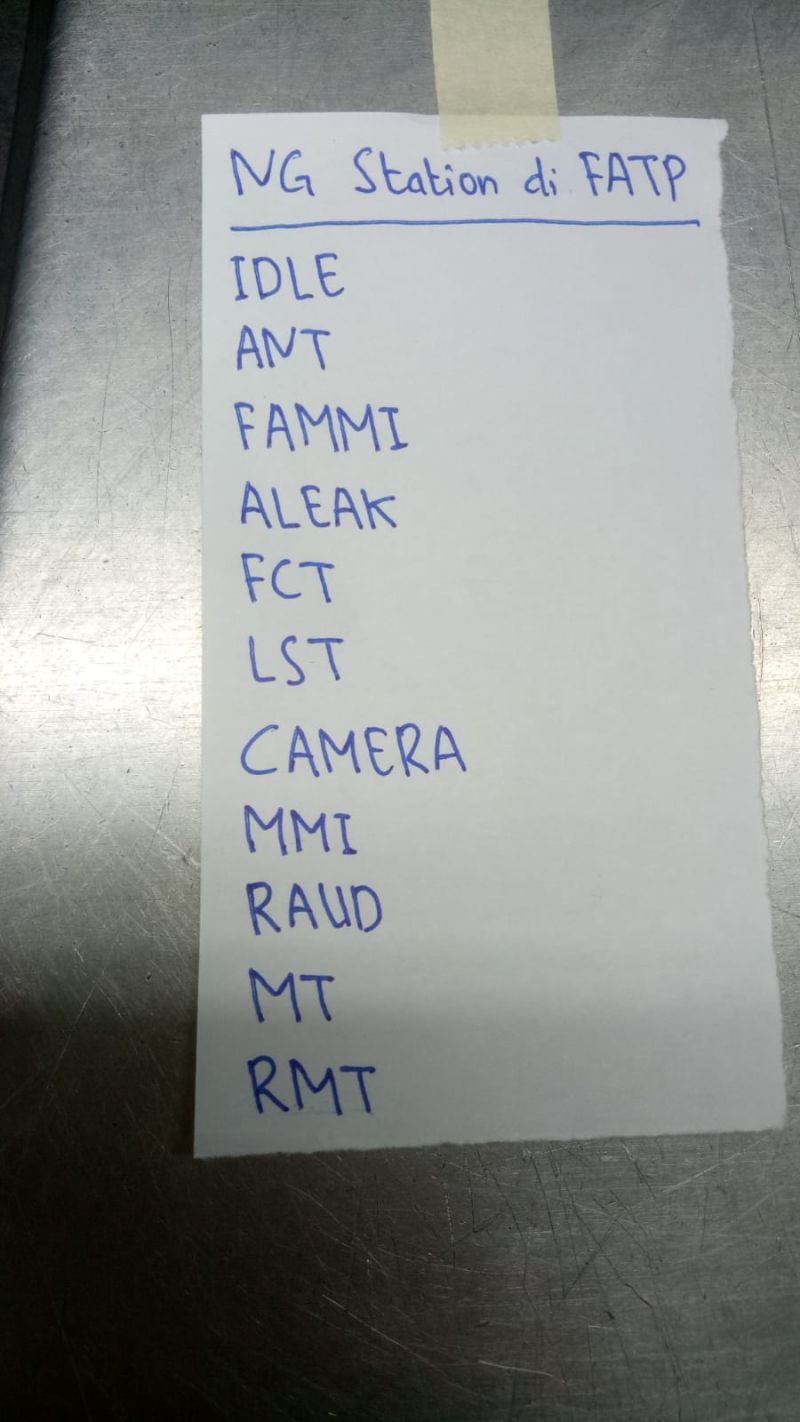 NG Station di FATP
IDLE
ANT
FAMMI
ALEAK
FCT
LST
CAMERA
MMI
RAUD
MT
RMT